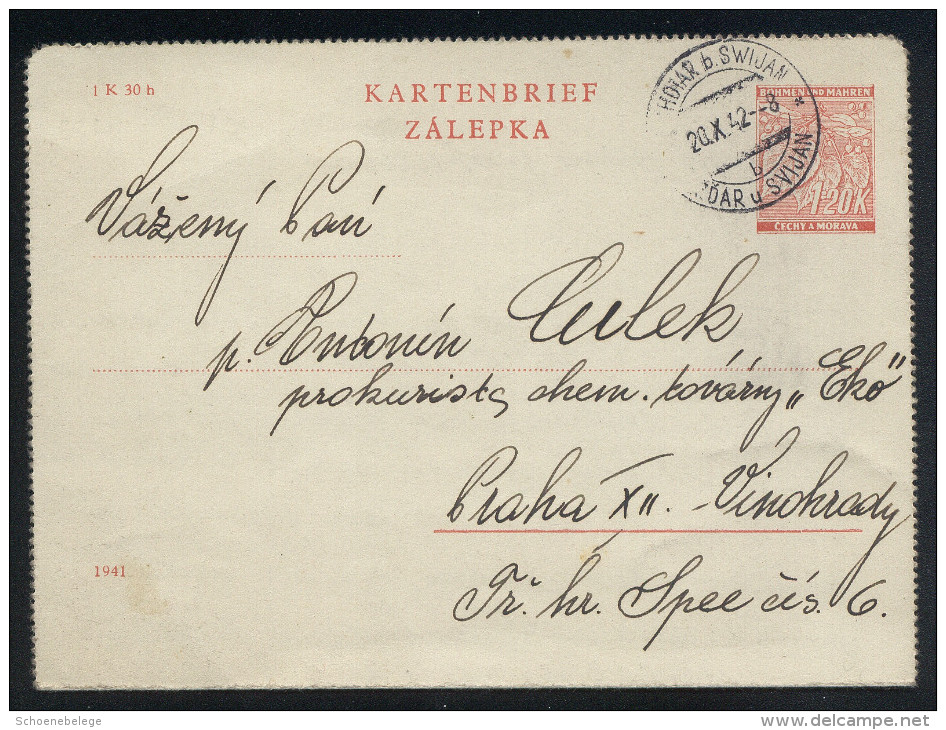 1 K 30 h
KARTENBRIEF
ZÁLEPKA
b. SWIJAN
20.X.42--8
b
ĎAR u SVIJAN
BÖHMEN UND MÄHREN
1·20K
ČECHY A MORAVA
Vážený Pan
p. Antonín Culek
prokurista chem. továrny „Eko"
Praha XII. - Vinohrady
Tř. hr. Spee čís. 6.
1941
Schoenebelege
www.delcampe.net